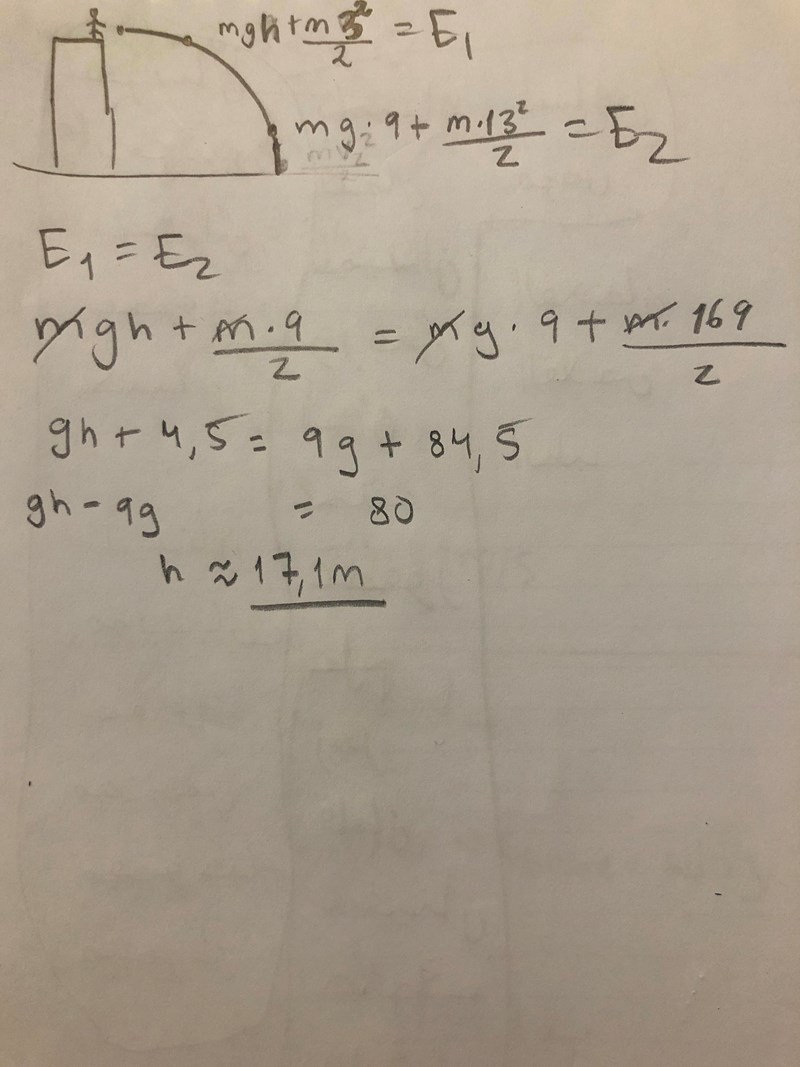 mgh + m3²/2 = E₁
mg · 9 + m·13²/2 = E₂
E₁ = E₂
mgh + m·9/2 = mg · 9 + m·169/2
gh + 4,5 = 9g + 84,5
gh - 9g = 80
h ≈ 17,1m